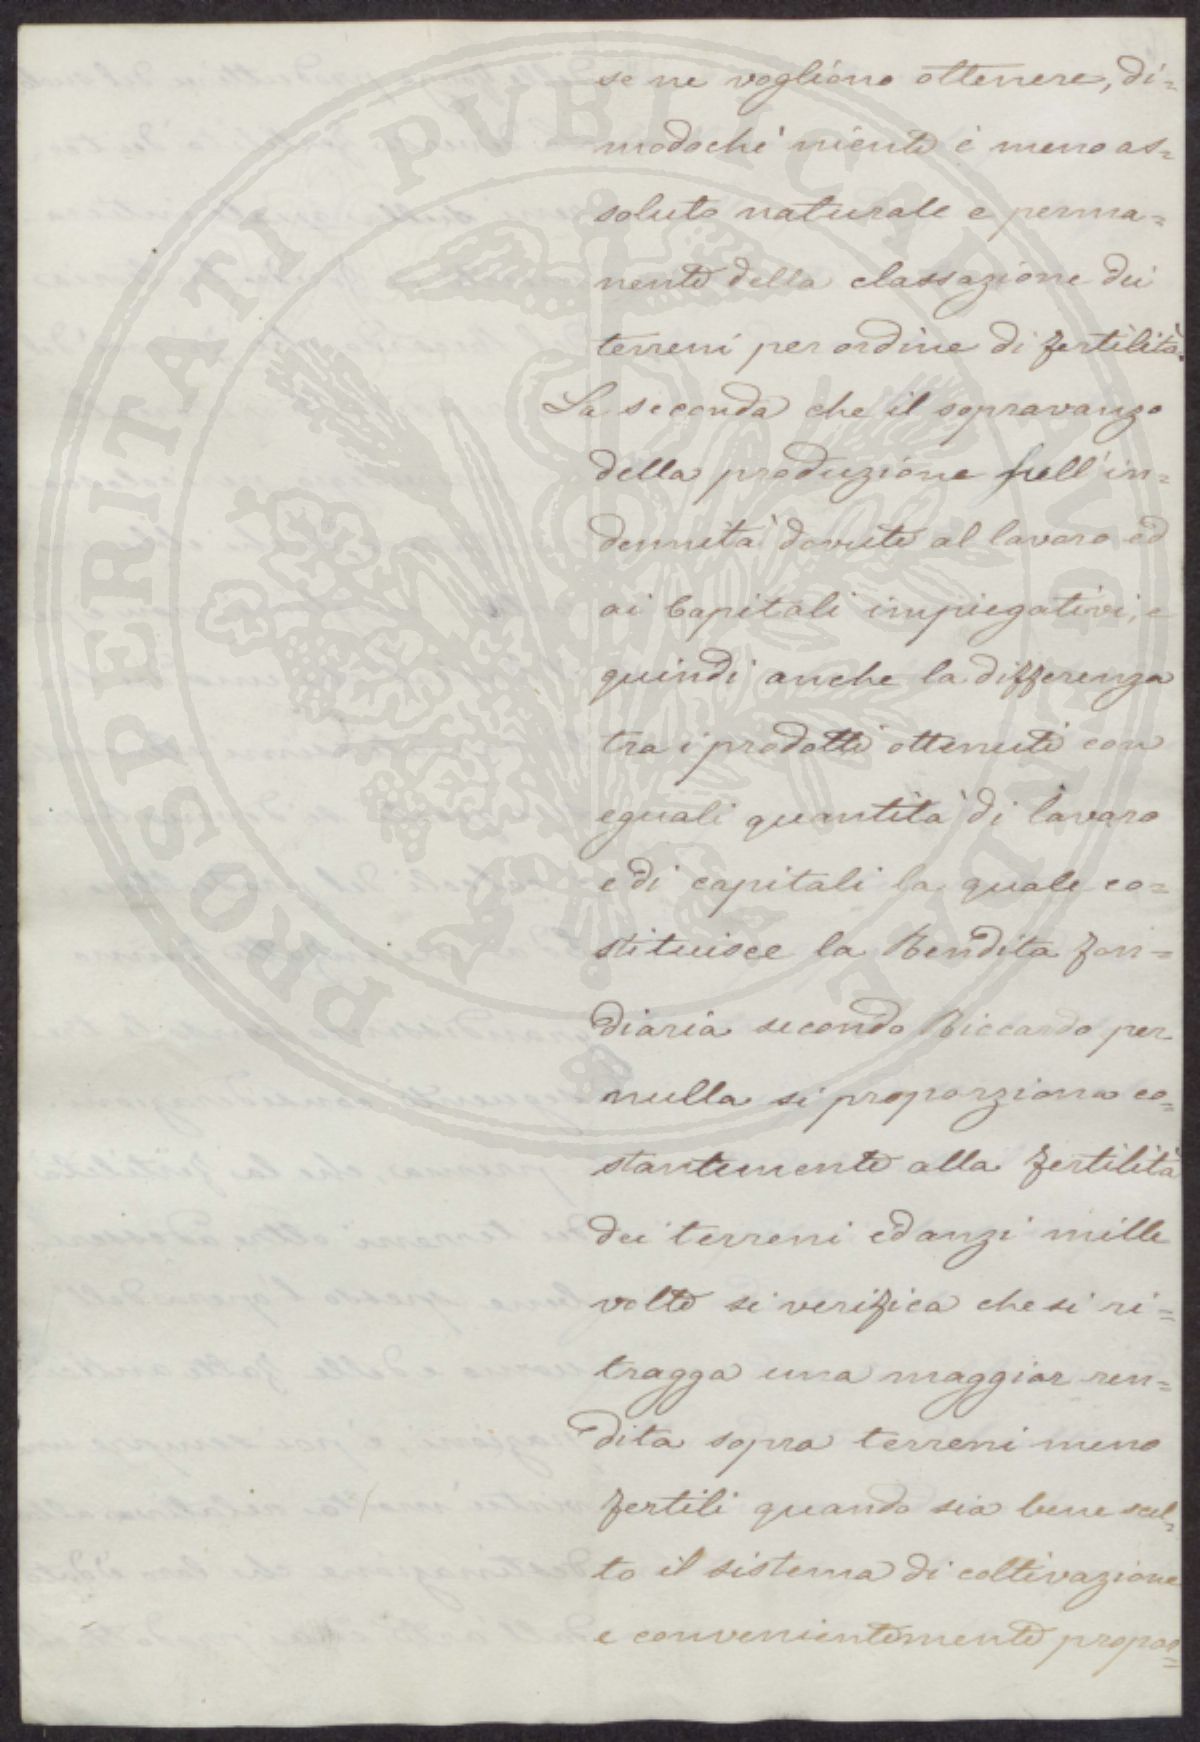 se ne vogliono ottenere, di=
modochè niente è meno as=
soluto naturale e perma=
nente della classazione dei
terreni per ordine di fertilità.
La seconda che il sopravanzo
della produzione sull'in=
dennità dovute al lavoro ed
ai Capitali impiegativi, e
quindi anche la differenza
tra i prodotti ottenuti con
eguali quantità di lavoro
e di capitali la quale co=
stituisce la Rendita fon=
diaria secondo Riccardo per
nulla si proporziona co=
stantemente alla fertilità
dei terreni ed anzi mille
volte si verifica che si ri=
tragga una maggior ren=
dita sopra terreni meno
fertili quando sia bene scel=
to il sistema di coltivazione
e convenientemente propor=
PROSPERITATI PUBLICAE AUGENDAE